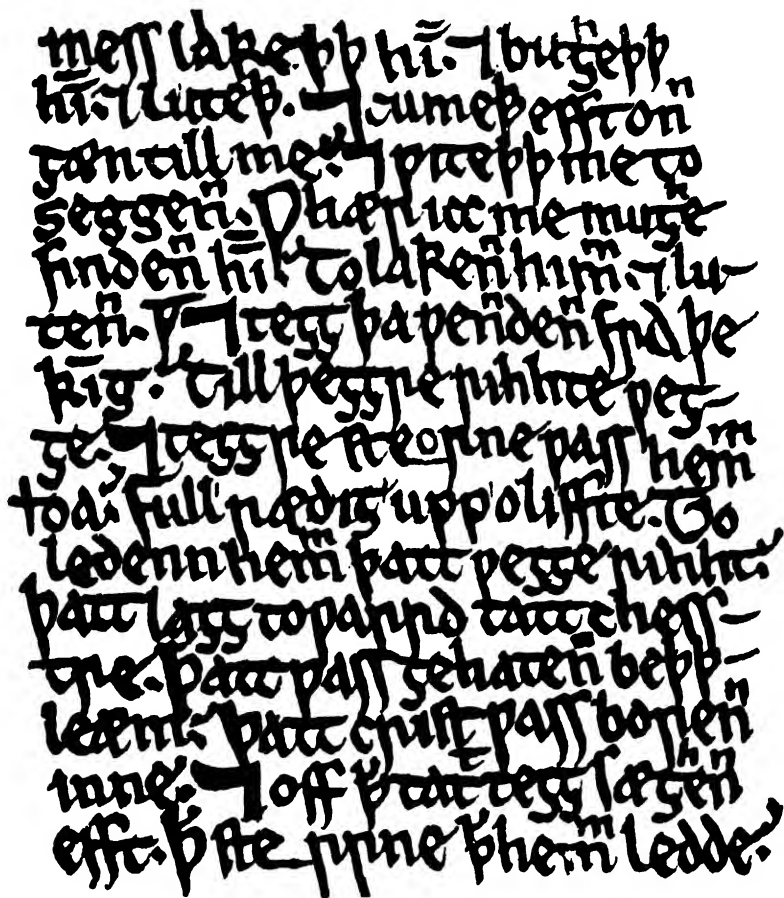 mess lakeþþ hī. ⁊ buȝʰeþþ
hī. ⁊ luteþþ. ⁊ cumeþþ efft onⁿ
ȝæn till me. ⁊ ƿiteþþ me to
seggenⁿ. Ƿhær icc me muȝʰe
findenⁿ hī. To lakenⁿ himᵐ. ⁊ lu-
tenⁿ. ⁊ teȝȝ þa ƿenⁿdenⁿ fra þe
kīg. Till þeȝȝre rihhte ƿeȝ-
ȝe. ⁊ teȝȝre steorrne ƿass hemᵐ
þa. Full rædiȝ upp o liffte. To
ledenn hemᵐ þatt ƿeȝȝe rihht.
þatt laȝȝ toƿarrd tatt chess-
tre. þatt ƿass ȝehatenⁿ beþþ-
leæm. þatt crist ƿass borenⁿ
inne. ⁊ off þ tatᵗ teȝȝ sæȝʰenⁿ
efft. þ ste rrne þ hemᵐ ledde.